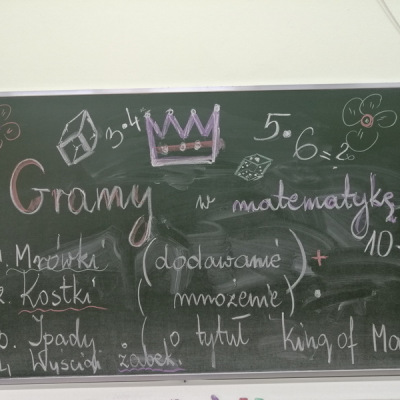 3·4
5·6=?
Gramy w matematykę
10-
1. Mrówki (dodawanie) +
2. Kostki (mnożenie) ·
3. Jpady (o tytuł King of Ma
4. Wyścigi żabek.